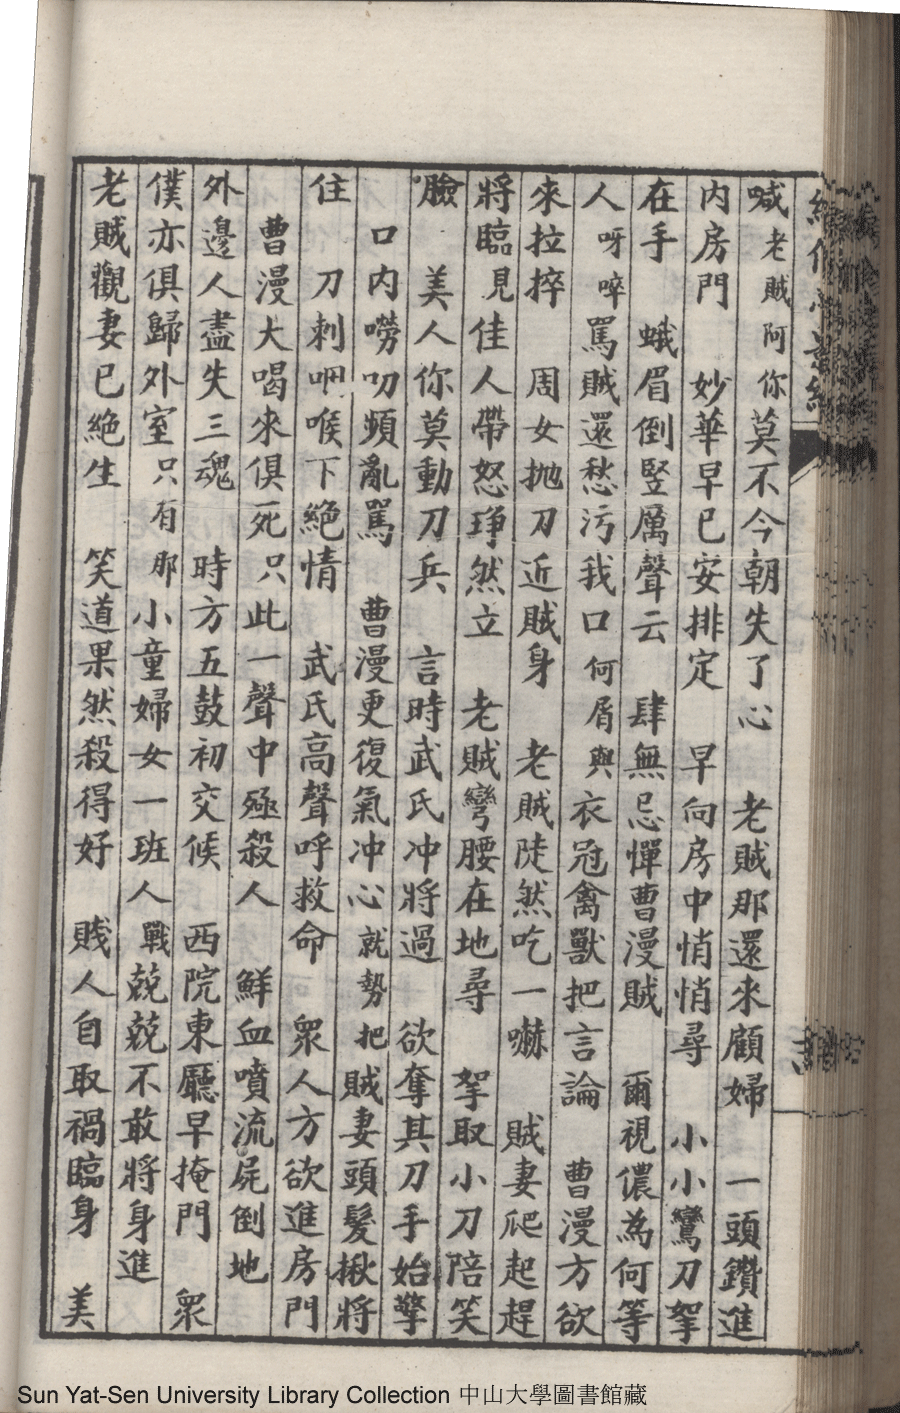 喊老賊阿你莫不今朝失了心　老賊那還來顧婦　一頭鑽進
内房門　妙華早已安排定　早向房中悄悄尋　小小鸞刀拏
在手　蛾眉倒竪厲聲云　肆無忌憚曹漫賊　爾視儂為何等
人呀啐罵賊還愁污我口何屑與衣冠禽獸把言論　曹漫方欲
來拉捽　周女抛刀近賊身　老賊陡然吃一嚇　賊妻爬起趕
將臨見佳人帶怒琤然立　老賊彎腰在地尋　拏取小刀陪笑
臉　美人你莫動刀兵　言時武氏冲將過　欲奪其刀手始擎
口内嘮叨頻亂罵　曹漫更復氣冲心就勢把賊妻頭髮揪將
住　刀刺咽喉下絶情　武氏高聲呼救命　衆人方欲進房門
曹漫大喝來俱死只此一聲中殛殺人　鮮血噴流屍倒地
外邊人盡失三魂　時方五鼓初交候　西院東廳早掩門　衆
僕亦俱歸外室只有那小童婦女一班人戰兢兢不敢將身進
老賊觀妻已絶生　笑道果然殺得好　賤人自取禍臨身　美
Sun Yat-Sen University Library Collection 中山大學圖書館藏